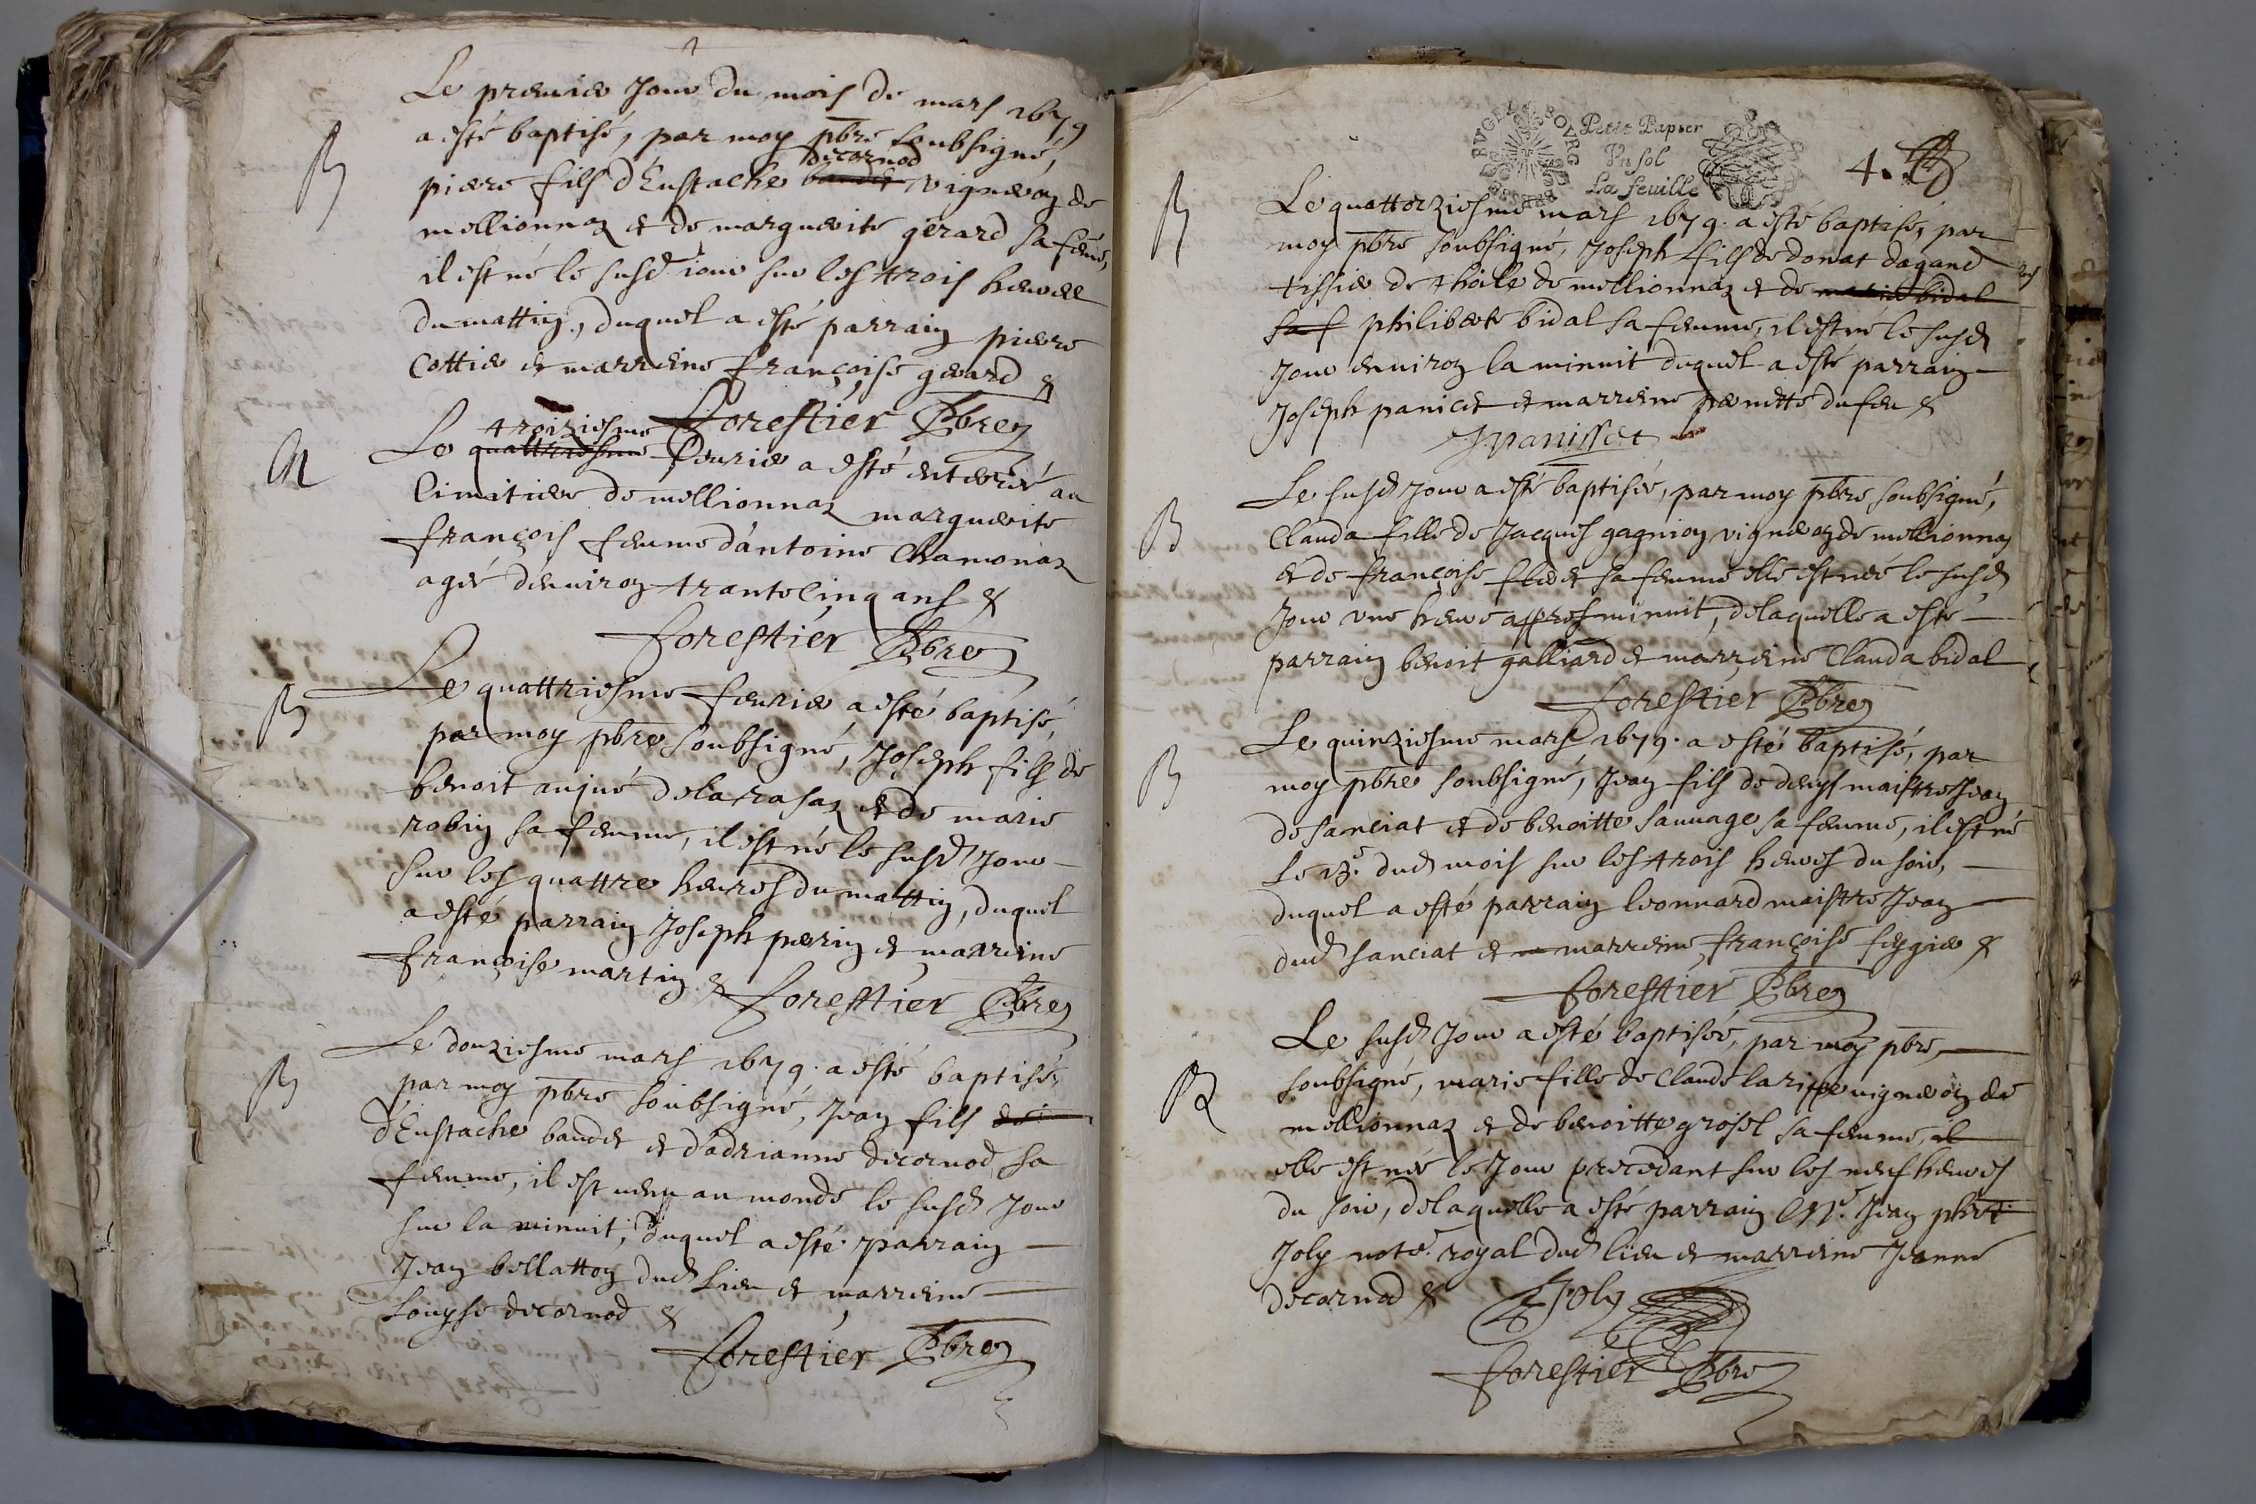 Le premier Jour du mois de mars 1679
B
a esté baptisé, par moy pbre soubsigné,
decornod
pierre fils d'Eustache bandet vigneron de
mellionnaz et de marguerite gerard sa feme,
il est né le susd iour sur les trois heures
du mattin, duquel a esté parrain pierre
Cottier et marreine françoise gerard &
Forestier Pbre
troiziesme
M
Le quattriesme feurier a esté enterré au
Cimitiere de mellionnaz marguerite
françois femme d'antoine Chamonaz
ageé d'enuiron trante cinq ans &
forestier Pbre
B
Le quattriesme feurier a esté baptisé,
par moy pbre soubsigné, Joseph fils de
benoit anjué de la rasaz et de marie
robin sa femme, il est né le susd Jour
sur les quattre heures du mattin, duquel
a esté parrain Joseph perrin et marreine
françoise martin & forestier Pbre
B
Le douziesme mars 1679 a esté baptisé,
par moy pbre soubsigné, Jean fils
d'Eustache bandet et d'adrianne decornod sa
femme, il est uenu au monde le susd Jour
sur la minuit, duquel a esté parrain
Jean bellatton dud lieu et marreine
Louyse decornod &
forestier Pbre
BVGEY BOVRG
Petit Papier
Vn sol
La feuille
4.
B
Le quattorziesme mars 1679 a esté baptisé, par
moy pbre soubsigné, Joseph fils de donat dagand
tissier de thoile de mellionnaz et de marie bidal
sa f philiberte bidal sa femme, il est né le susd
Jour enuiron la minuit duquel a esté parrain
Joseph panicet et marreine pernette dufeu &
J panisset
B
Le susd Jour a esté baptiseé, par moy pbre soubsigné,
Clauda fille de Jacques gagnion vigneron de mellionnaz
et de françoise sa femme elle est neé le susd
Jour vne heure appres minuit, de laquelle a esté
parrain benoit galliard et marreine Clauda bidal
forestier Pbre
B
Le quinziesme mars 1679 a esté baptisé, par
moy pbre soubsigné, Jean fils de denys maistre Jean
de sanciat et de benoitte sauuage sa femme, il est né
le 13e dud mois sur les trois heures du soir,
duquel a esté parrain leonnard maistre Jean
dud sanciat et marreine françoise &
forestier Pbre
B
Le susd Jour a esté baptiseé, par moy pbre,
soubsigné, marie fille de Claude larippe vigneron de
mellionnaz et de benoitte grosel sa femme, il
elle est neé le Jour precedant sur les neuf heures
du soir, de laquelle a esté parrain Mre Jean phbt
Joly note royal dud lieu et marreine Jeanne
decornod & Joly
forestier Pbre